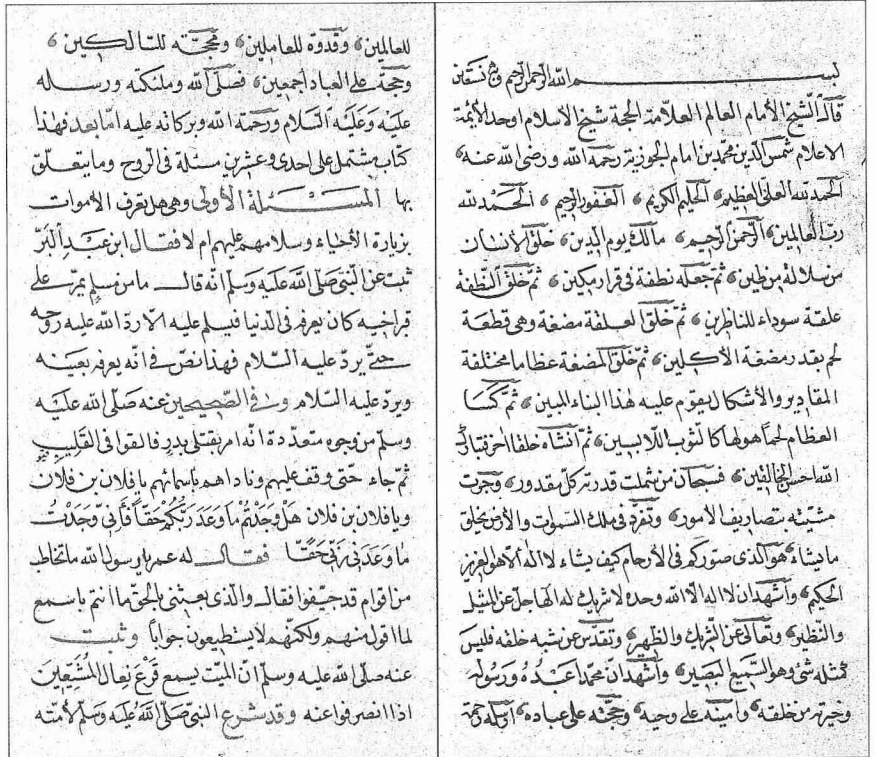 بسم الله الرحمن الرحيم وبه نستعين
قال الشيخ الأمام العالم العلامة الحجة شيخ الاسلام اوحد الأئمة
الاعلام شمس الدين محمد بن امام الجوزية رحمه الله ورضى الله عنه
الحمد لله العلى العظيم الحليم الكريم الغفور الرحيم الحمد لله
رب العالمين الرحمن الرحيم مالك يوم الدين خلق الأنسان
من سلالة من طين ثم جعله نطفة فى قرار مكين ثم خلق النطفة
علقة سوداء للناظرين ثم خلق العلقة مضغة وهى قطعة
لحم بقدر مضغة الأكلين ثم خلق المضغة عظاما مختلفة
المقادير والأشكال يقوم عليه هذا البناء المبين ثم كسا
العظام لحما هولها كالثوب للابسين ثم انشاه خلقا اخر فتبارك
الله احسن الخالقين فسبحان من شملت قدرته كل مقدور وجرت
مشيته بتصاريف الأمور وتفرد فى ملك السموات والأرض يخلق
ما يشاء هو الذى صوركم فى الأرحام كيف يشاء لا اله الا هو العزيز
الحكيم واشهد ان لا اله الا الله وحده لا شريك له الها جل عن المثل
والنظير وتعالى عن الشريك والظهير وتقدس عن شبه خلقه فليس
كمثله شئ وهو السميع البصير واشهد ان محمدا عبده ورسوله
وخيرته من خلقه وامينه على وحيه وحجته على عباده ارسله رحمة
للعالمين وقدوة للعاملين ومحجة للسالكين
وحجة على العباد اجمعين فصلى الله وملئكته ورسله
عليه وعليه السلام ورحمة الله وبركاته عليه اما بعد فهذا
كتاب يشتمل على احدى وعشرين مسئلة فى الروح وما يتعلق
بها المسئلة الأولى وهى هل تعرف الأموات
بزيارة الأحياء وسلامهم عليهم ام لا فقال ابن عبد البر
ثبت عن النبى صلى الله عليه وسلم انه قال ما من مسلم يمر على
قبر اخيه كان يعرفه فى الدنيا فيسلم عليه الا رد الله عليه روحه
حتى يرد عليه السلام فهذا نص فى انه يعرفه بعينه
ويرد عليه السلام وفى الصحيحين عنه صلى الله عليه
وسلم من وجوه متعددة انه امر بقتلى بدر فالقوا فى القليب
ثم جاء حتى وقف عليهم وناداهم باسمائهم يا فلان بن فلان
ويا فلان بن فلان هل وجدتم ما وعد ربكم حقا فأنى وجدت
ما وعدنى ربى حقا فقال له عمر يا رسول الله ما تخاطب
من اقوام قد جيفوا فقال والذى بعثنى بالحق ما انتم باسمع
لما اقول منهم ولكنهم لا يستطيعون جوابا وثبت
عنه صلى الله عليه وسلم ان الميت يسمع قرع نعال المشيعين
اذا انصرفوا عنه وقد شرع النبى صلى الله عليه وسلم لأمته